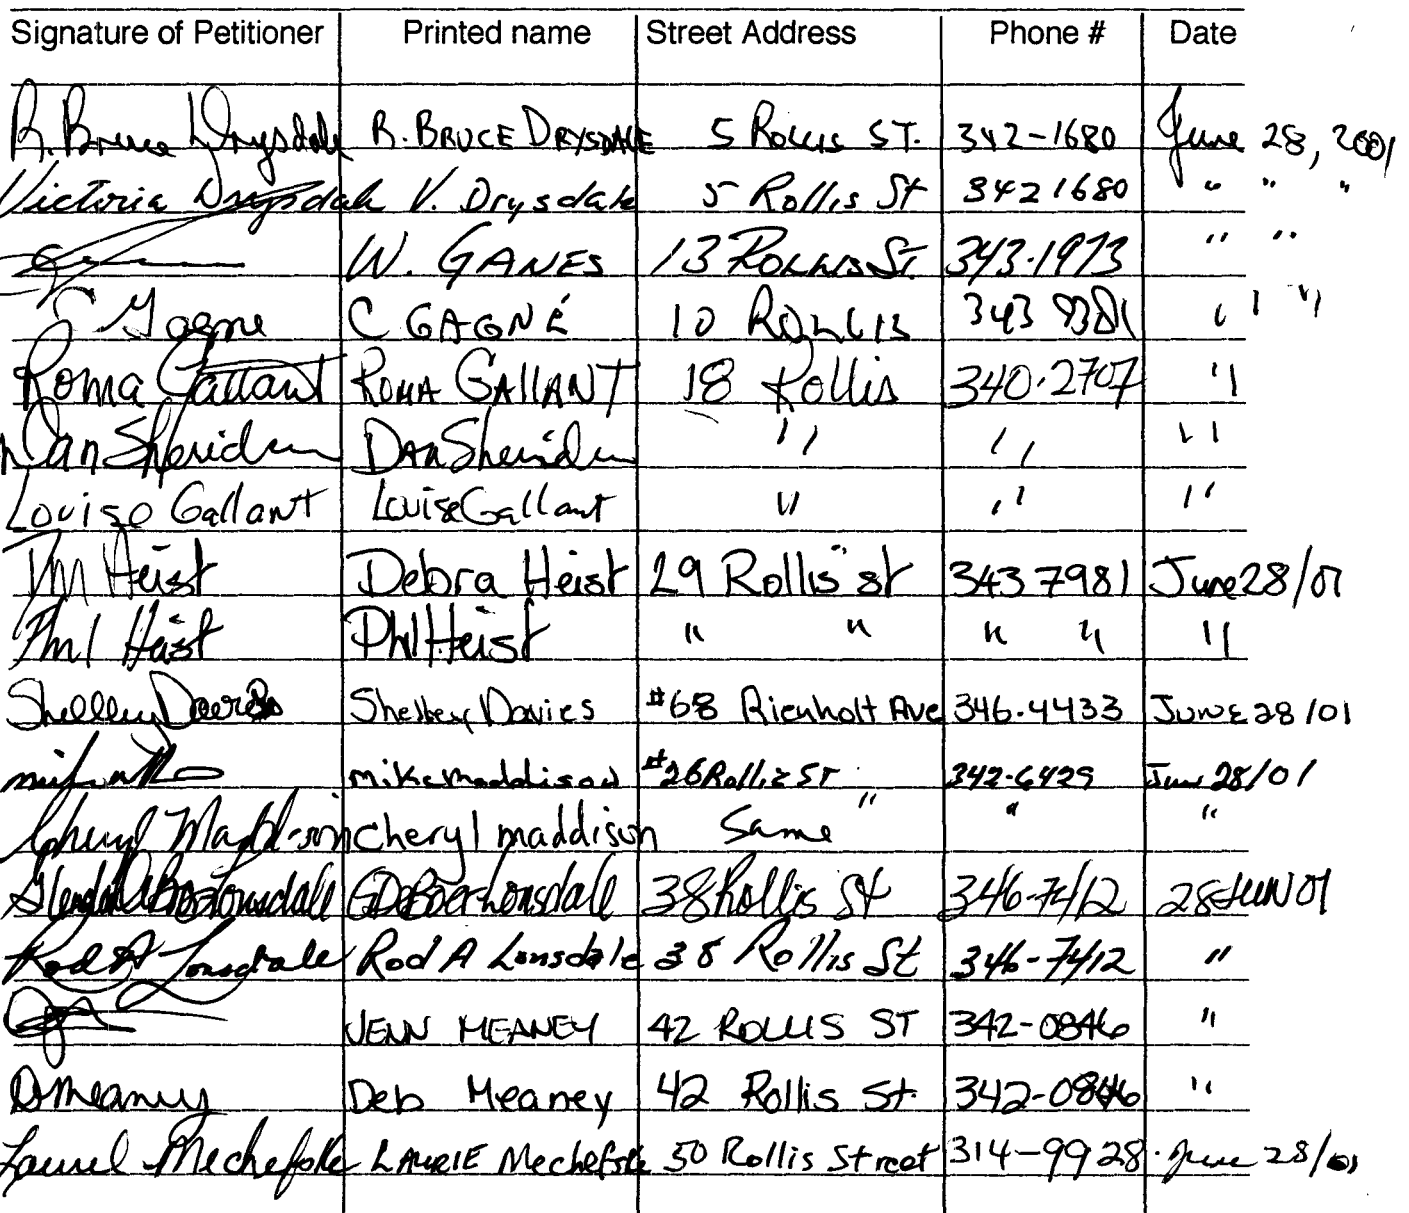 Signature of Petitioner Printed name Street Address Phone # Date
R. Bruce Drysdale R. BRUCE DRYSDALE 5 ROLLIS ST. 342-1680 June 28, 2001
Victoria Drysdale V. Drysdale 5 Rollis St 342 1680 " " "
W. GANES 13 ROLLIS ST. 343-1973 " "
C Gagne C GAGNÉ 10 ROLLIS 343 9381 " "
Roma Gallant ROMA GALLANT 18 Rollis 340-2707 "
Dan Sheridan Dan Sheridan " " "
Louise Gallant Louise Gallant " " "
DM Heist Debra Heist 29 Rollis st 343 7981 June 28/01
Phil Heist Phil Heist " " " " "
Shelley Davies Shelley Davies #68 Rienholt Ave 346-4433 June 28/01
mike maddison #26 Rollis ST 342-6429 June 28/01
Cheryl Maddison cheryl maddison Same " " "
Glenda DeBoer Lonsdale G DeBoer Lonsdale 38 Rollis St 346-7412 28 JUN 01
Rod A Lonsdale Rod A Lonsdale 38 Rollis St 346-7412 "
JENN MEANEY 42 ROLLIS ST 342-0846 "
D Meaney Deb Meaney 42 Rollis St. 342-0846 "
Laurel Mechefske LAURIE Mechefske 50 Rollis Street 314-9928 June 28/01